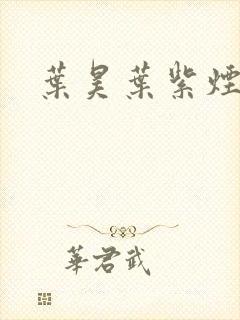 葉昊葉紫煙
華君武